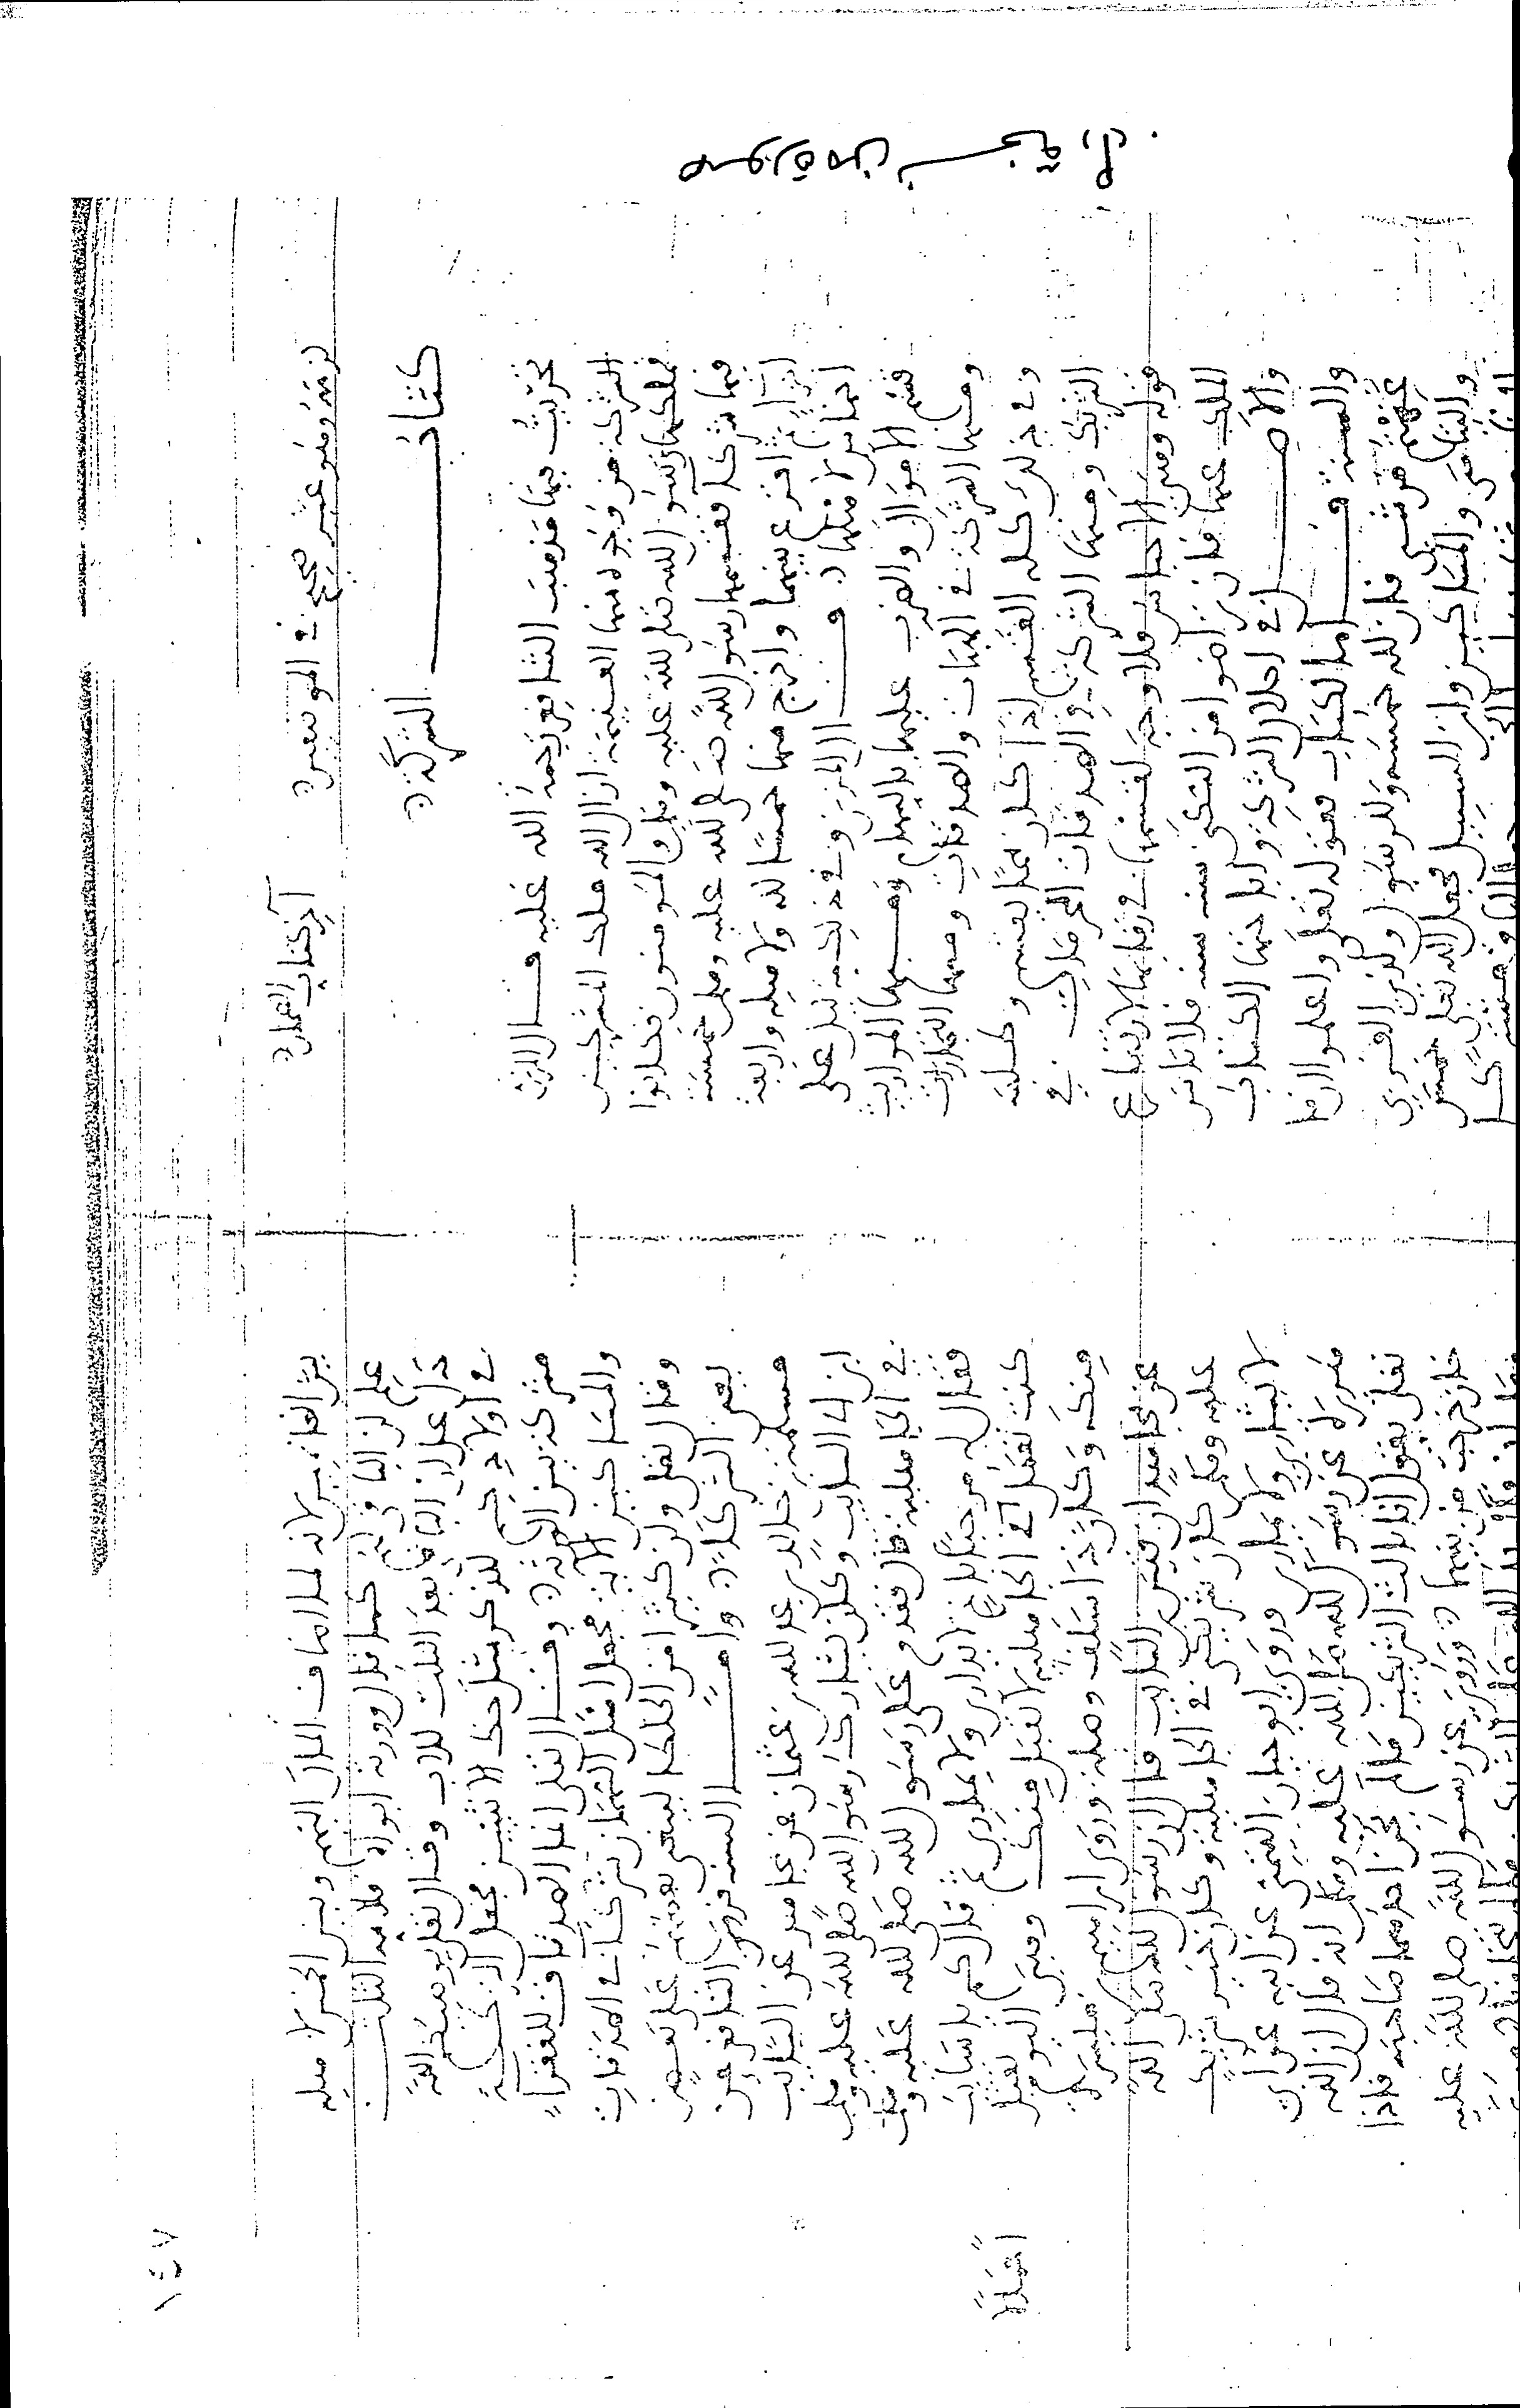 صورة من نسخة ( ل )
لزمته ومنو عشر صحيح في الموضعين
آخر كتاب الضمان
كتاب الشركة
تحرير فيها مذهب الشافعي رحمة الله عليه قال المزني
الشركة من وجوه منها الغنيمة ازال الله ملك المشركين
فملكها رسول الله صلى الله عليه وسلم والمؤمنون فكانوا
فيها شركا فقسمها رسول الله صلى الله عليه وسلم خمسة
اجزاء ثم اقرع بينها واخرج منها خمسا لله ولاهله واربعة
اخماس لاهلها قال المزني وفي ذلك دليل على
قسم الأموال والضرب عليها بالسهام ومنها المواريث
ومنها الشركة في الهبات والصدقات ومنها التجارات
وفي ذلك كله القسم اذا كان مما يقسم وطلبه
الشريك ومنها الشركة في الصدقات المحرمات في
قوله وهي الأحباس فلا وجه لقسمها في رقابها لارتفاع
الملك عنها فان تراضوا من السكنى سنة سنة فلا باس
والأصل في احلال الشركة واباحتها الكتاب
والسنة فاما الكتاب فقوله تعالى واعلموا انما
غنمتم من شيء فان لله خمسه وللرسول ولذي القربى
واليتامى والمساكين وابن السبيل فجعل الله تعالى خمس
بين الغانمين لانه لما اضاف المال اليهم وبين الخمس لاهله
علم ان الباقي لهم كما قال وورثه ابواه فلامه الثلث
دل على ان الباقي بعد الثلث للاب وقال تعالى يوصيكم الله
في أولادكم للذكر مثل حظ الانثيين فجعل التركة
مشتركة بين الورثة وقال تعالى انما الصدقات للفقراء
والمساكين الآية فجعل اهل السهمان شركاء في الصدقات
وقال تعالى وان كثيرا من الخلطاء ليبغي بعضهم على بعض
يعني الشركاء واما السنة فروى الشافعي عن
مسلم بن خالد عن عبد الله بن عثمان عن مجاهد عن السايب
ابن ابي السايب وكان شارك رسول الله صلى الله عليه وسلم
في الجاهلية قال فقدم على رسول الله صلى الله عليه وسلم
فقال له مرحبا باخي لا يداري ولا يماري ثم قال كم يا سايب
كنت تعمل في الجاهلية اعمالا لا تقبل منك وهي اليوم تقبل
منك وكان ذا سلف وصلة وروى ابراهيم بن ميسرة
عن مجاهد ان قيس بن السايب قال ان رسول الله صلى الله
عليه وسلم كان شريكي في الجاهلية وكان خير شريك
لا يشاري ولا يماري وروى ابو حيان التيمي عن ابيه عن ابي
هريرة عن رسول الله صلى الله عليه وسلم انه قال ان الله
تعالى يقول انا ثالث الشريكين ما لم يخن احدهما صاحبه فاذا
خان خرجت من بينهما وروي عن رسول الله صلى الله عليه
اعمالا
١٤٧